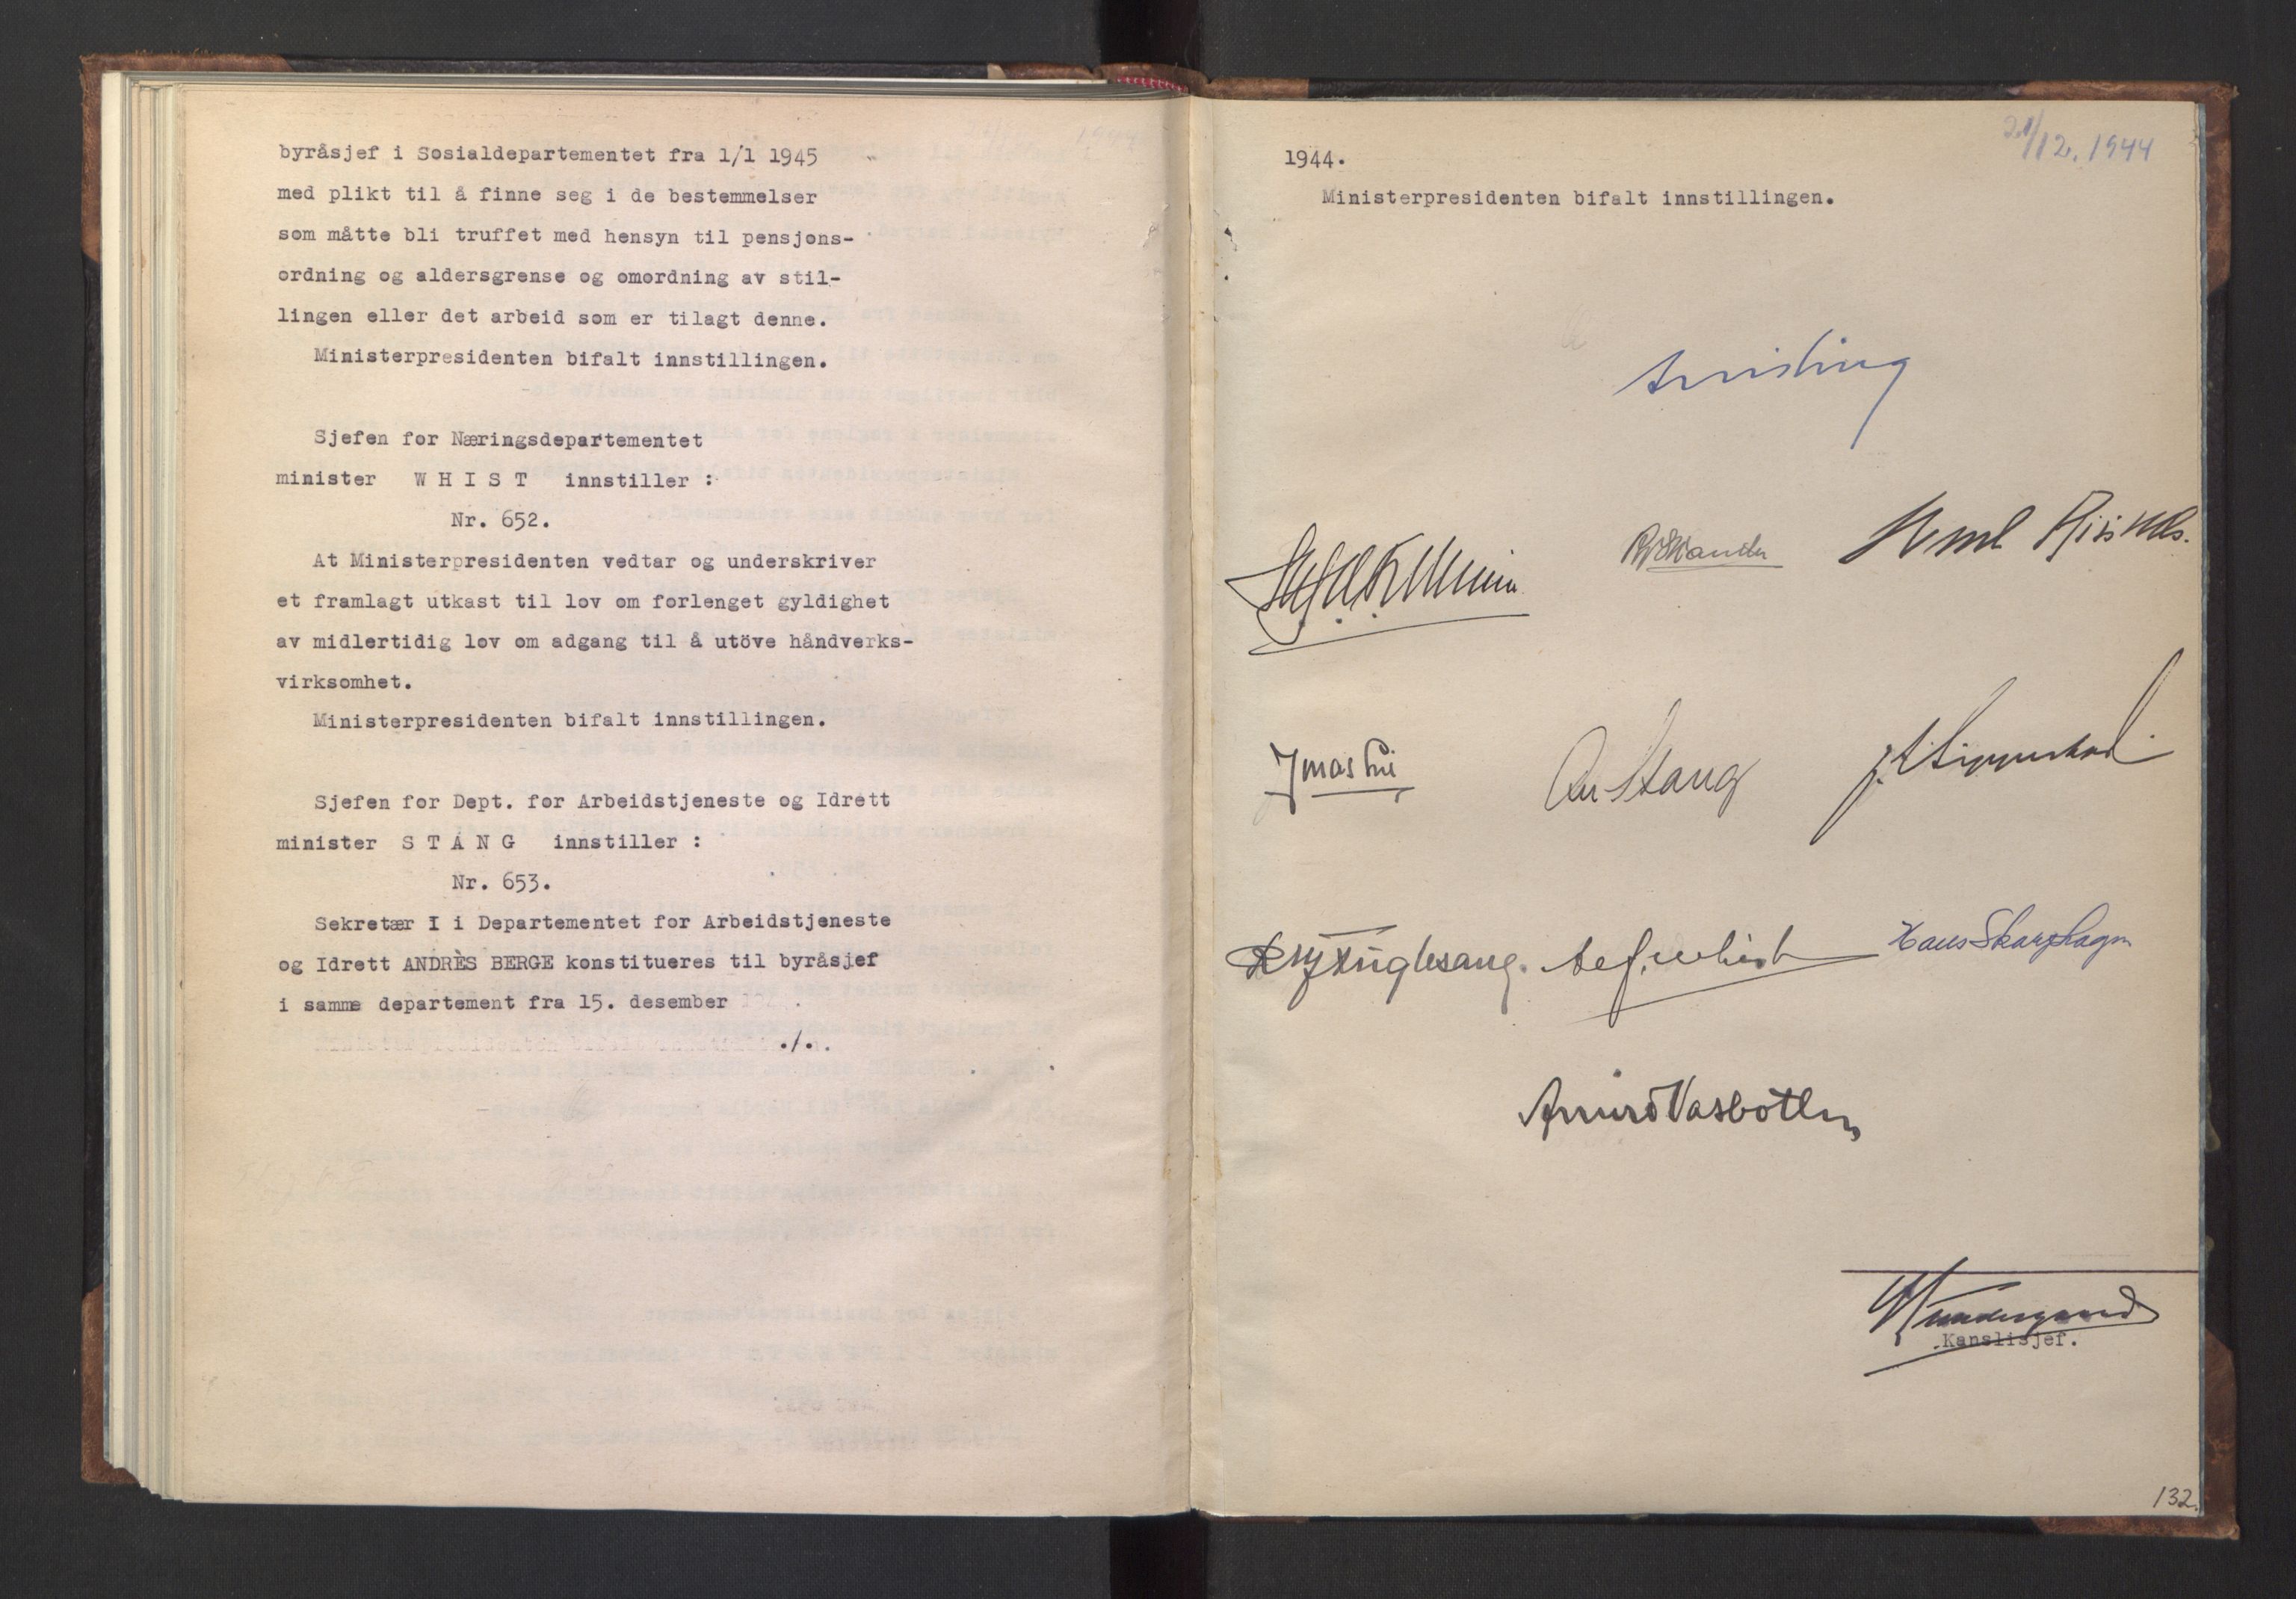 byråsjef i Sosialdepartementet fra 1/1 1945
med plikt til å finne seg i de bestemmelser
som måtte bli truffet med hensyn til pensjons-
ordning og aldersgrense og omordning av stil-
lingen eller det arbeid som er tilagt denne.
Ministerpresidenten bifalt innstillingen.
Sjefen for Næringsdepartementet
minister W H I S T innstiller :
Nr. 652.
At Ministerpresidenten vedtar og underskriver
et framlagt utkast til lov om forlenget gyldighet
av midlertidig lov om adgang til å utöve håndverks-
virksomhet.
Ministerpresidenten bifalt innstillingen.
Sjefen for Dept. for Arbeidstjeneste og Idrett
minister S T A N G innstiller :
Nr. 653.
Sekretær I i Departementet for Arbeidstjeneste
og Idrett ANDRÈS BERGE konstitueres til byråsjef
i samme departement fra 15. desember
./.
21/12. 1944
1944.
Ministerpresidenten bifalt innstillingen.
Quisling
R J Skancke
Sverre Riisnæs.
Stang
J Lippestad
R J Fuglesang. Alf. Whist Hans Skarphagen
Arnvid Vasbotten
Kanslisjef.
132.